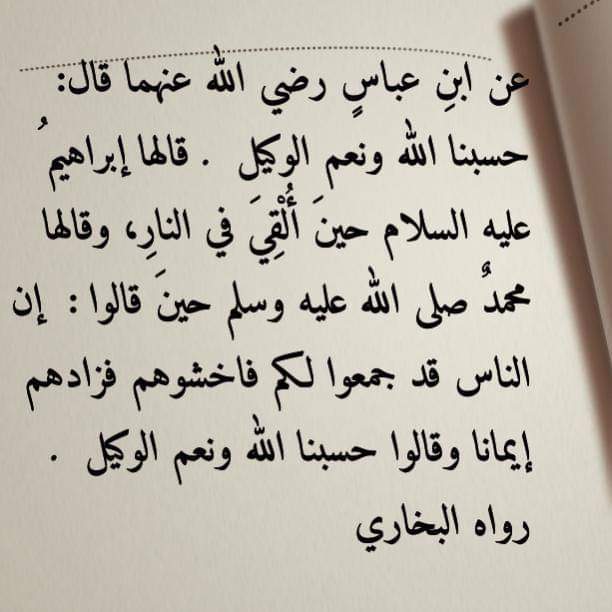 عن ابنِ عباسٍ رضي الله عنهما قال:
حسبنا الله ونعم الوكيل . قالها إبراهيمُ
عليه السلام حينَ أُلْقِيَ في النارِ، وقالها
محمدٌ صلى الله عليه وسلم حينَ قالوا : إن
الناس قد جمعوا لكم فاخشوهم فزادهم
إيمانا وقالوا حسبنا الله ونعم الوكيل .
رواه البخاري